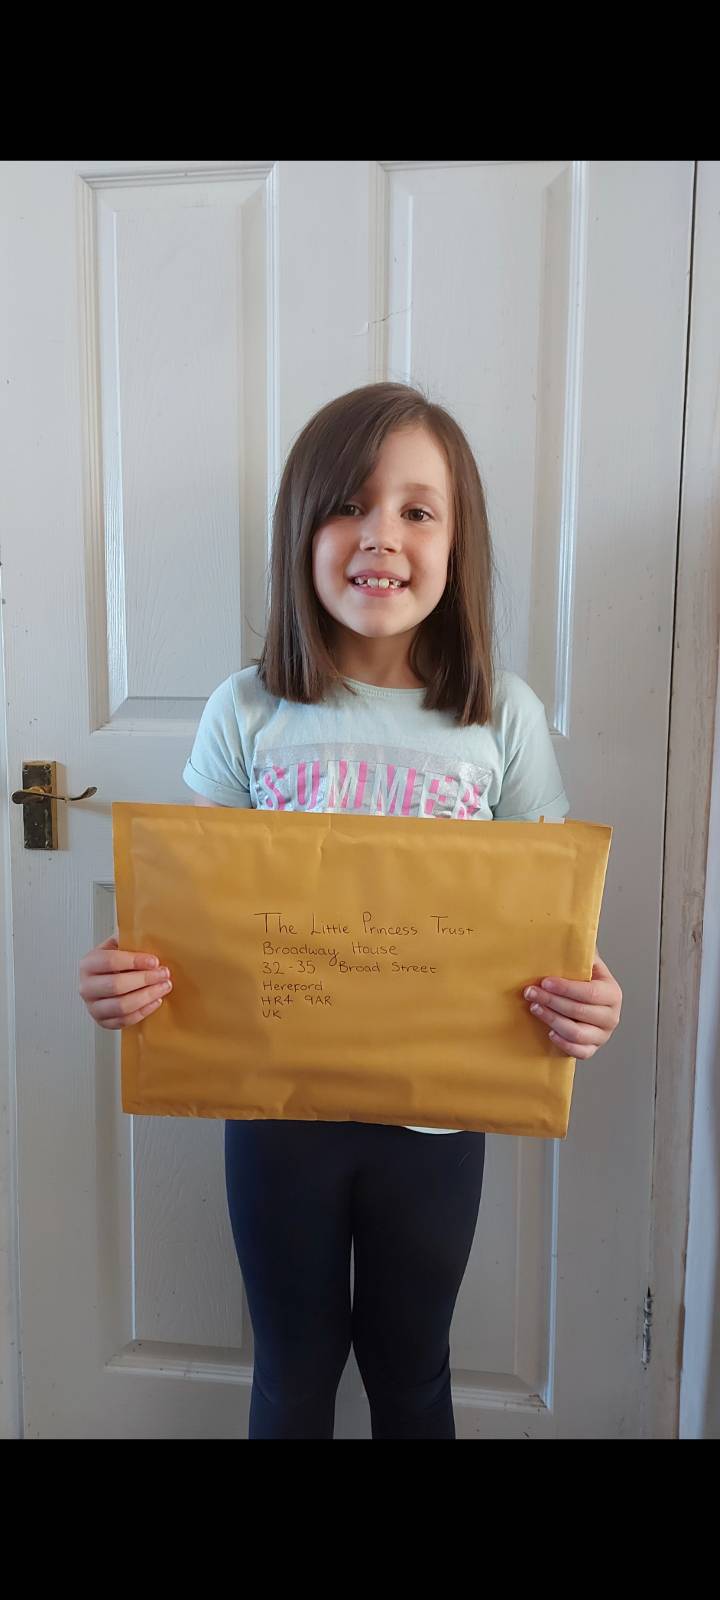 SUMMER
The Little Princess Trust
Broadway House
32-35 Broad Street
Hereford
HR4 9AR
UK